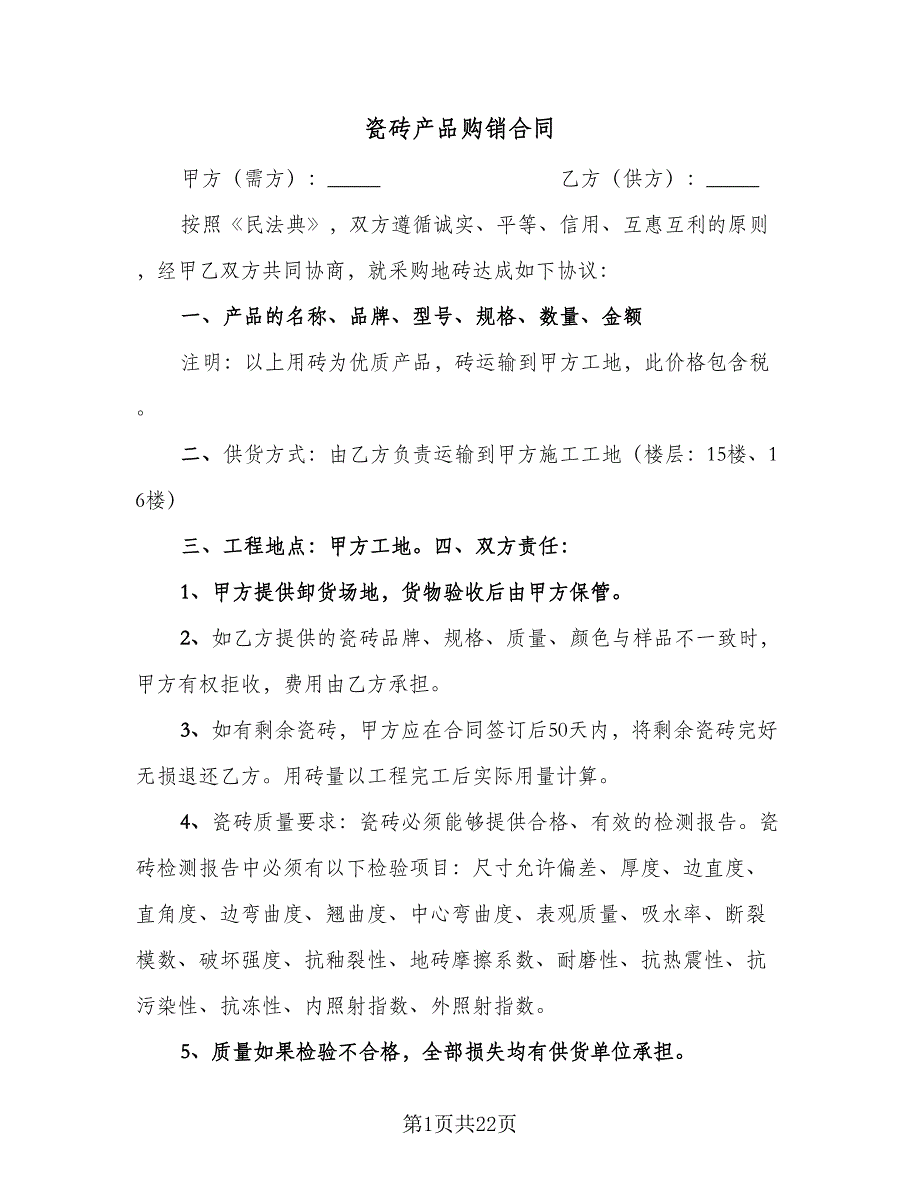 瓷砖产品购销合同
甲方（需方）：_____ 乙方（供方）：_____
按照《民法典》，双方遵循诚实、平等、信用、互惠互利的原则
，经甲乙双方共同协商，就采购地砖达成如下协议：
一、产品的名称、品牌、型号、规格、数量、金额
注明：以上用砖为优质产品，砖运输到甲方工地，此价格包含税
。
二、供货方式：由乙方负责运输到甲方施工工地（楼层：15楼、1
6楼）
三、工程地点：甲方工地。四、双方责任：
1、甲方提供卸货场地，货物验收后由甲方保管。
2、如乙方提供的瓷砖品牌、规格、质量、颜色与样品不一致时，
甲方有权拒收，费用由乙方承担。
3、如有剩余瓷砖，甲方应在合同签订后50天内，将剩余瓷砖完好
无损退还乙方。用砖量以工程完工后实际用量计算。
4、瓷砖质量要求：瓷砖必须能够提供合格、有效的检测报告。瓷
砖检测报告中必须有以下检验项目：尺寸允许偏差、厚度、边直度、
直角度、边弯曲度、翘曲度、中心弯曲度、表观质量、吸水率、断裂
模数、破坏强度、抗釉裂性、地砖摩擦系数、耐磨性、抗热震性、抗
污染性、抗冻性、内照射指数、外照射指数。
5、质量如果检验不合格，全部损失均有供货单位承担。
第1页共22页